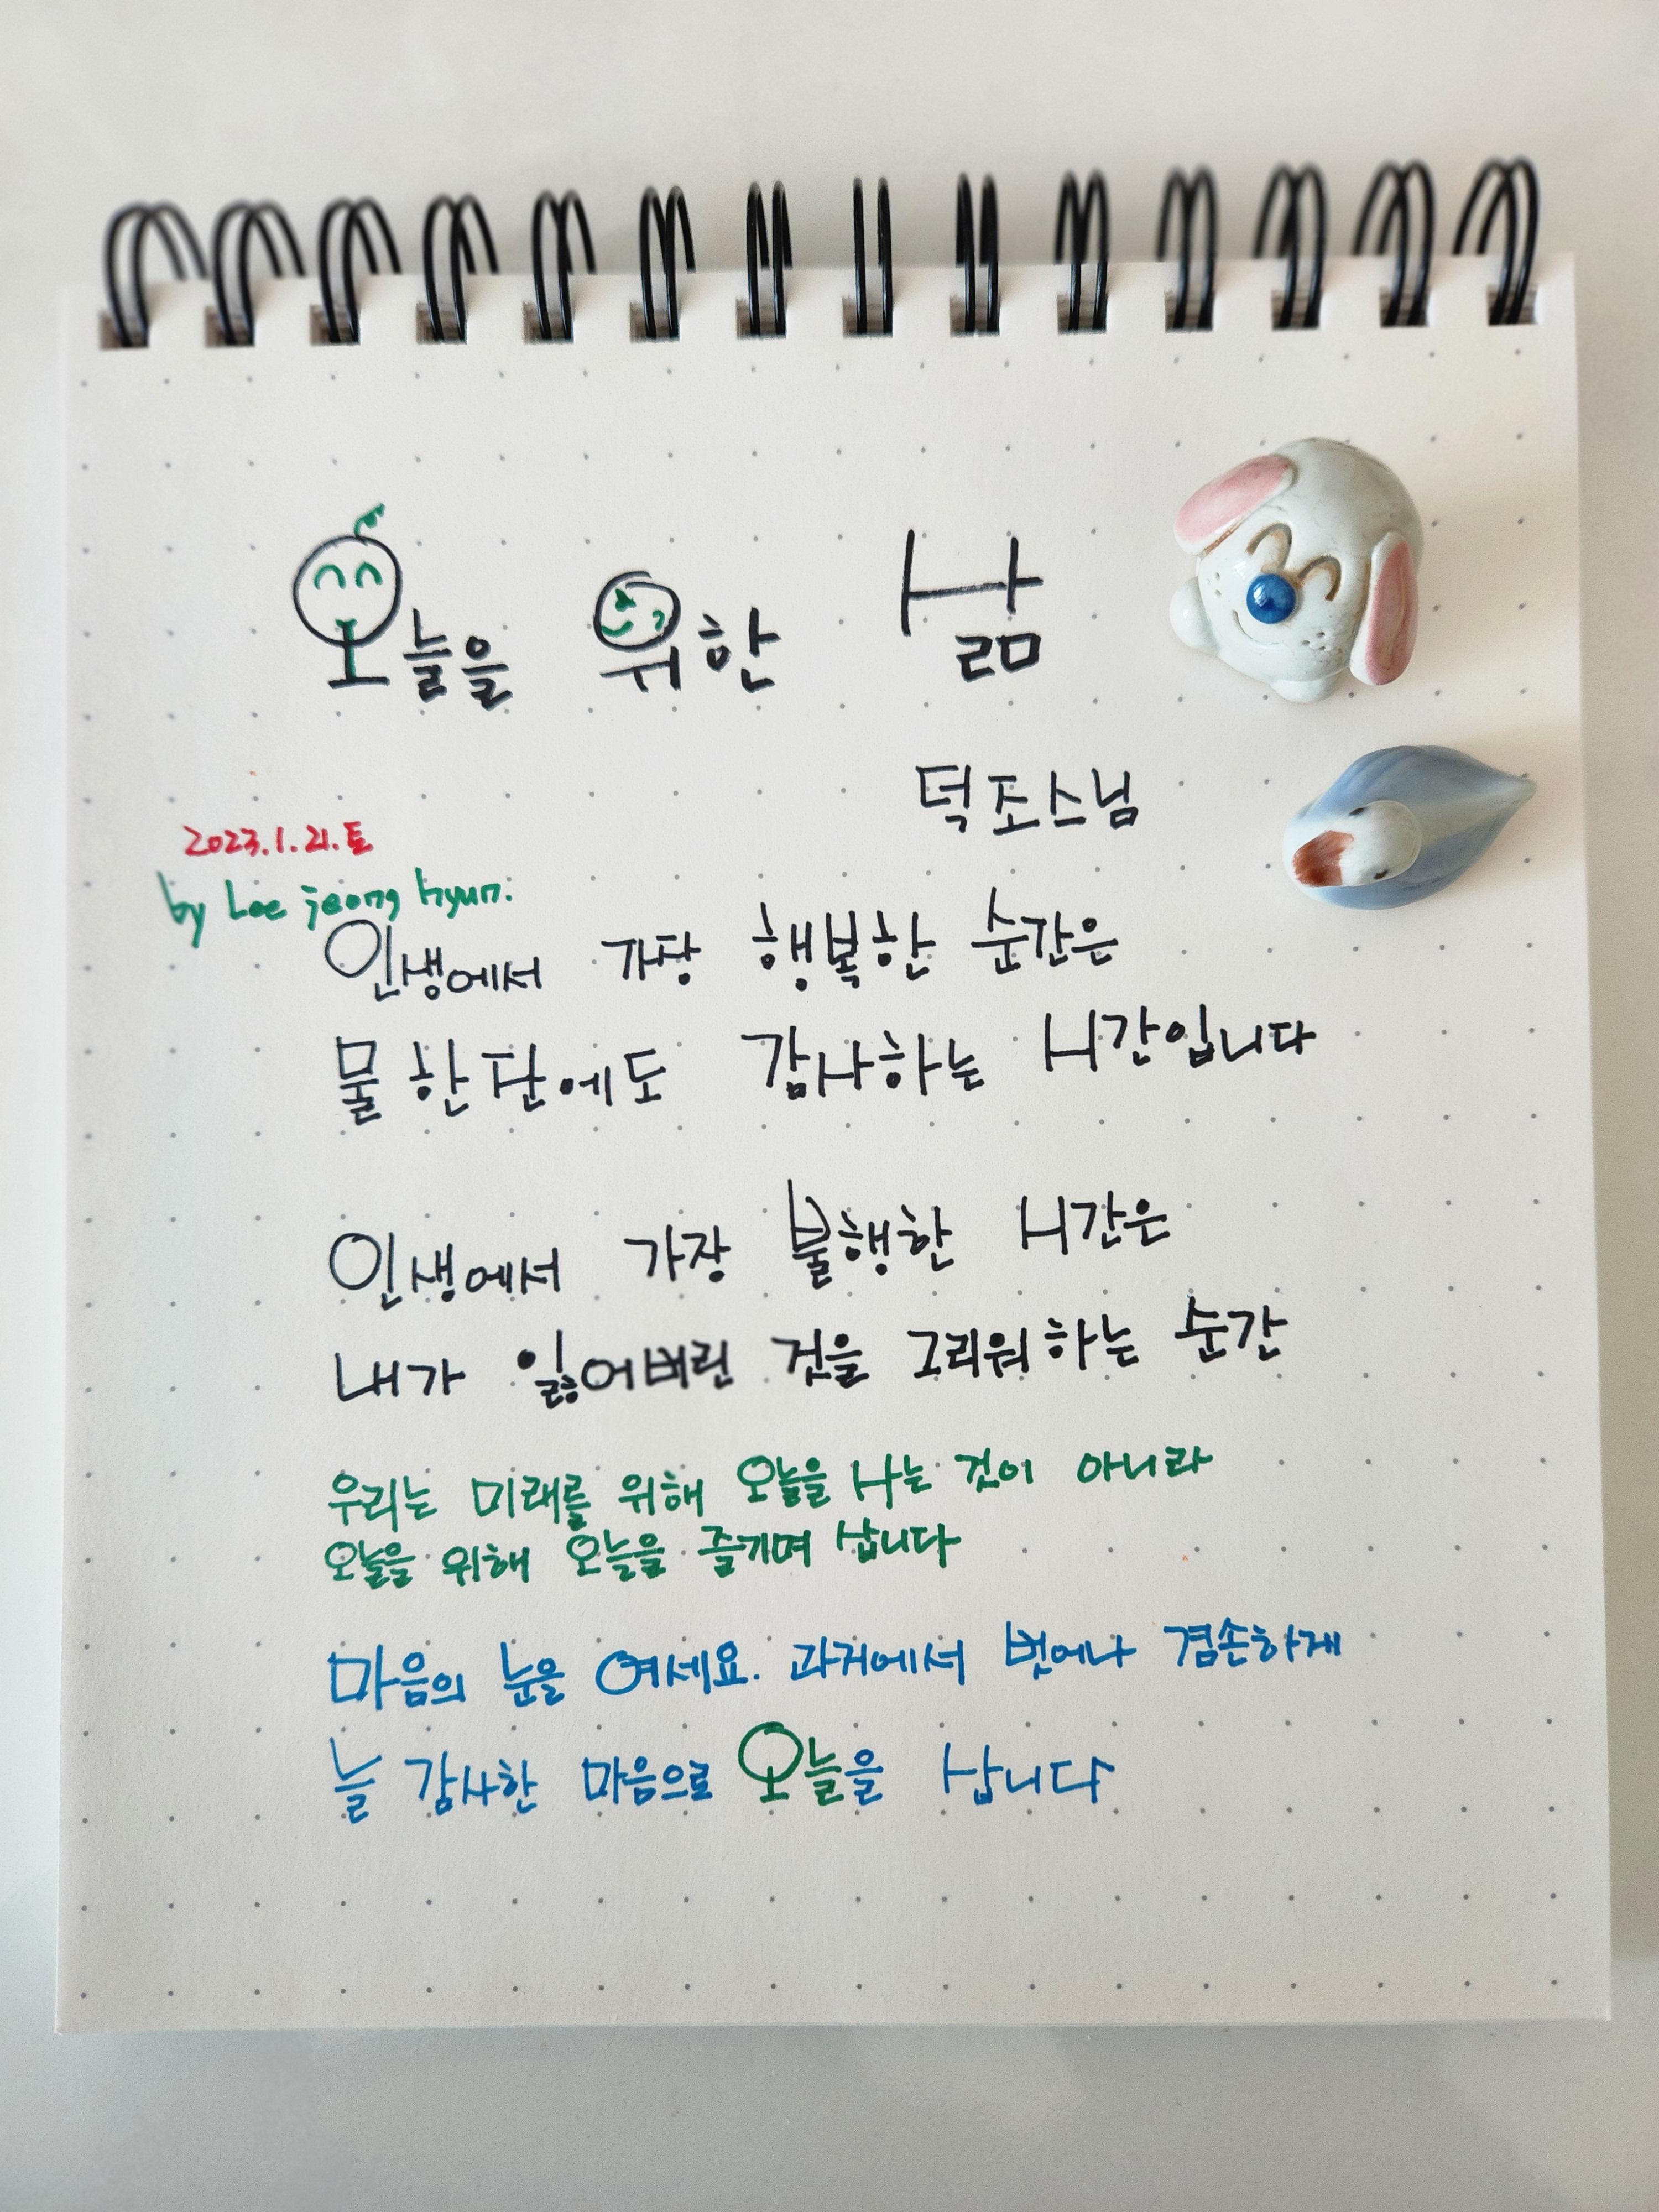 오늘을 위한 삶
덕조스님
2023.1.21.토
by Lee jeong hyun.
인생에서 가장 행복한 순간은
물 한잔에도 감사하는 시간입니다
인생에서 가장 불행한 시간은
내가 잃어버린 것을 그리워하는 순간
우리는 미래를 위해 오늘을 사는 것이 아니라
오늘을 위해 오늘을 즐기며 삽니다
마음의 눈을 여세요. 과거에서 벗어나 겸손하게
늘 감사한 마음으로 오늘을 삽니다